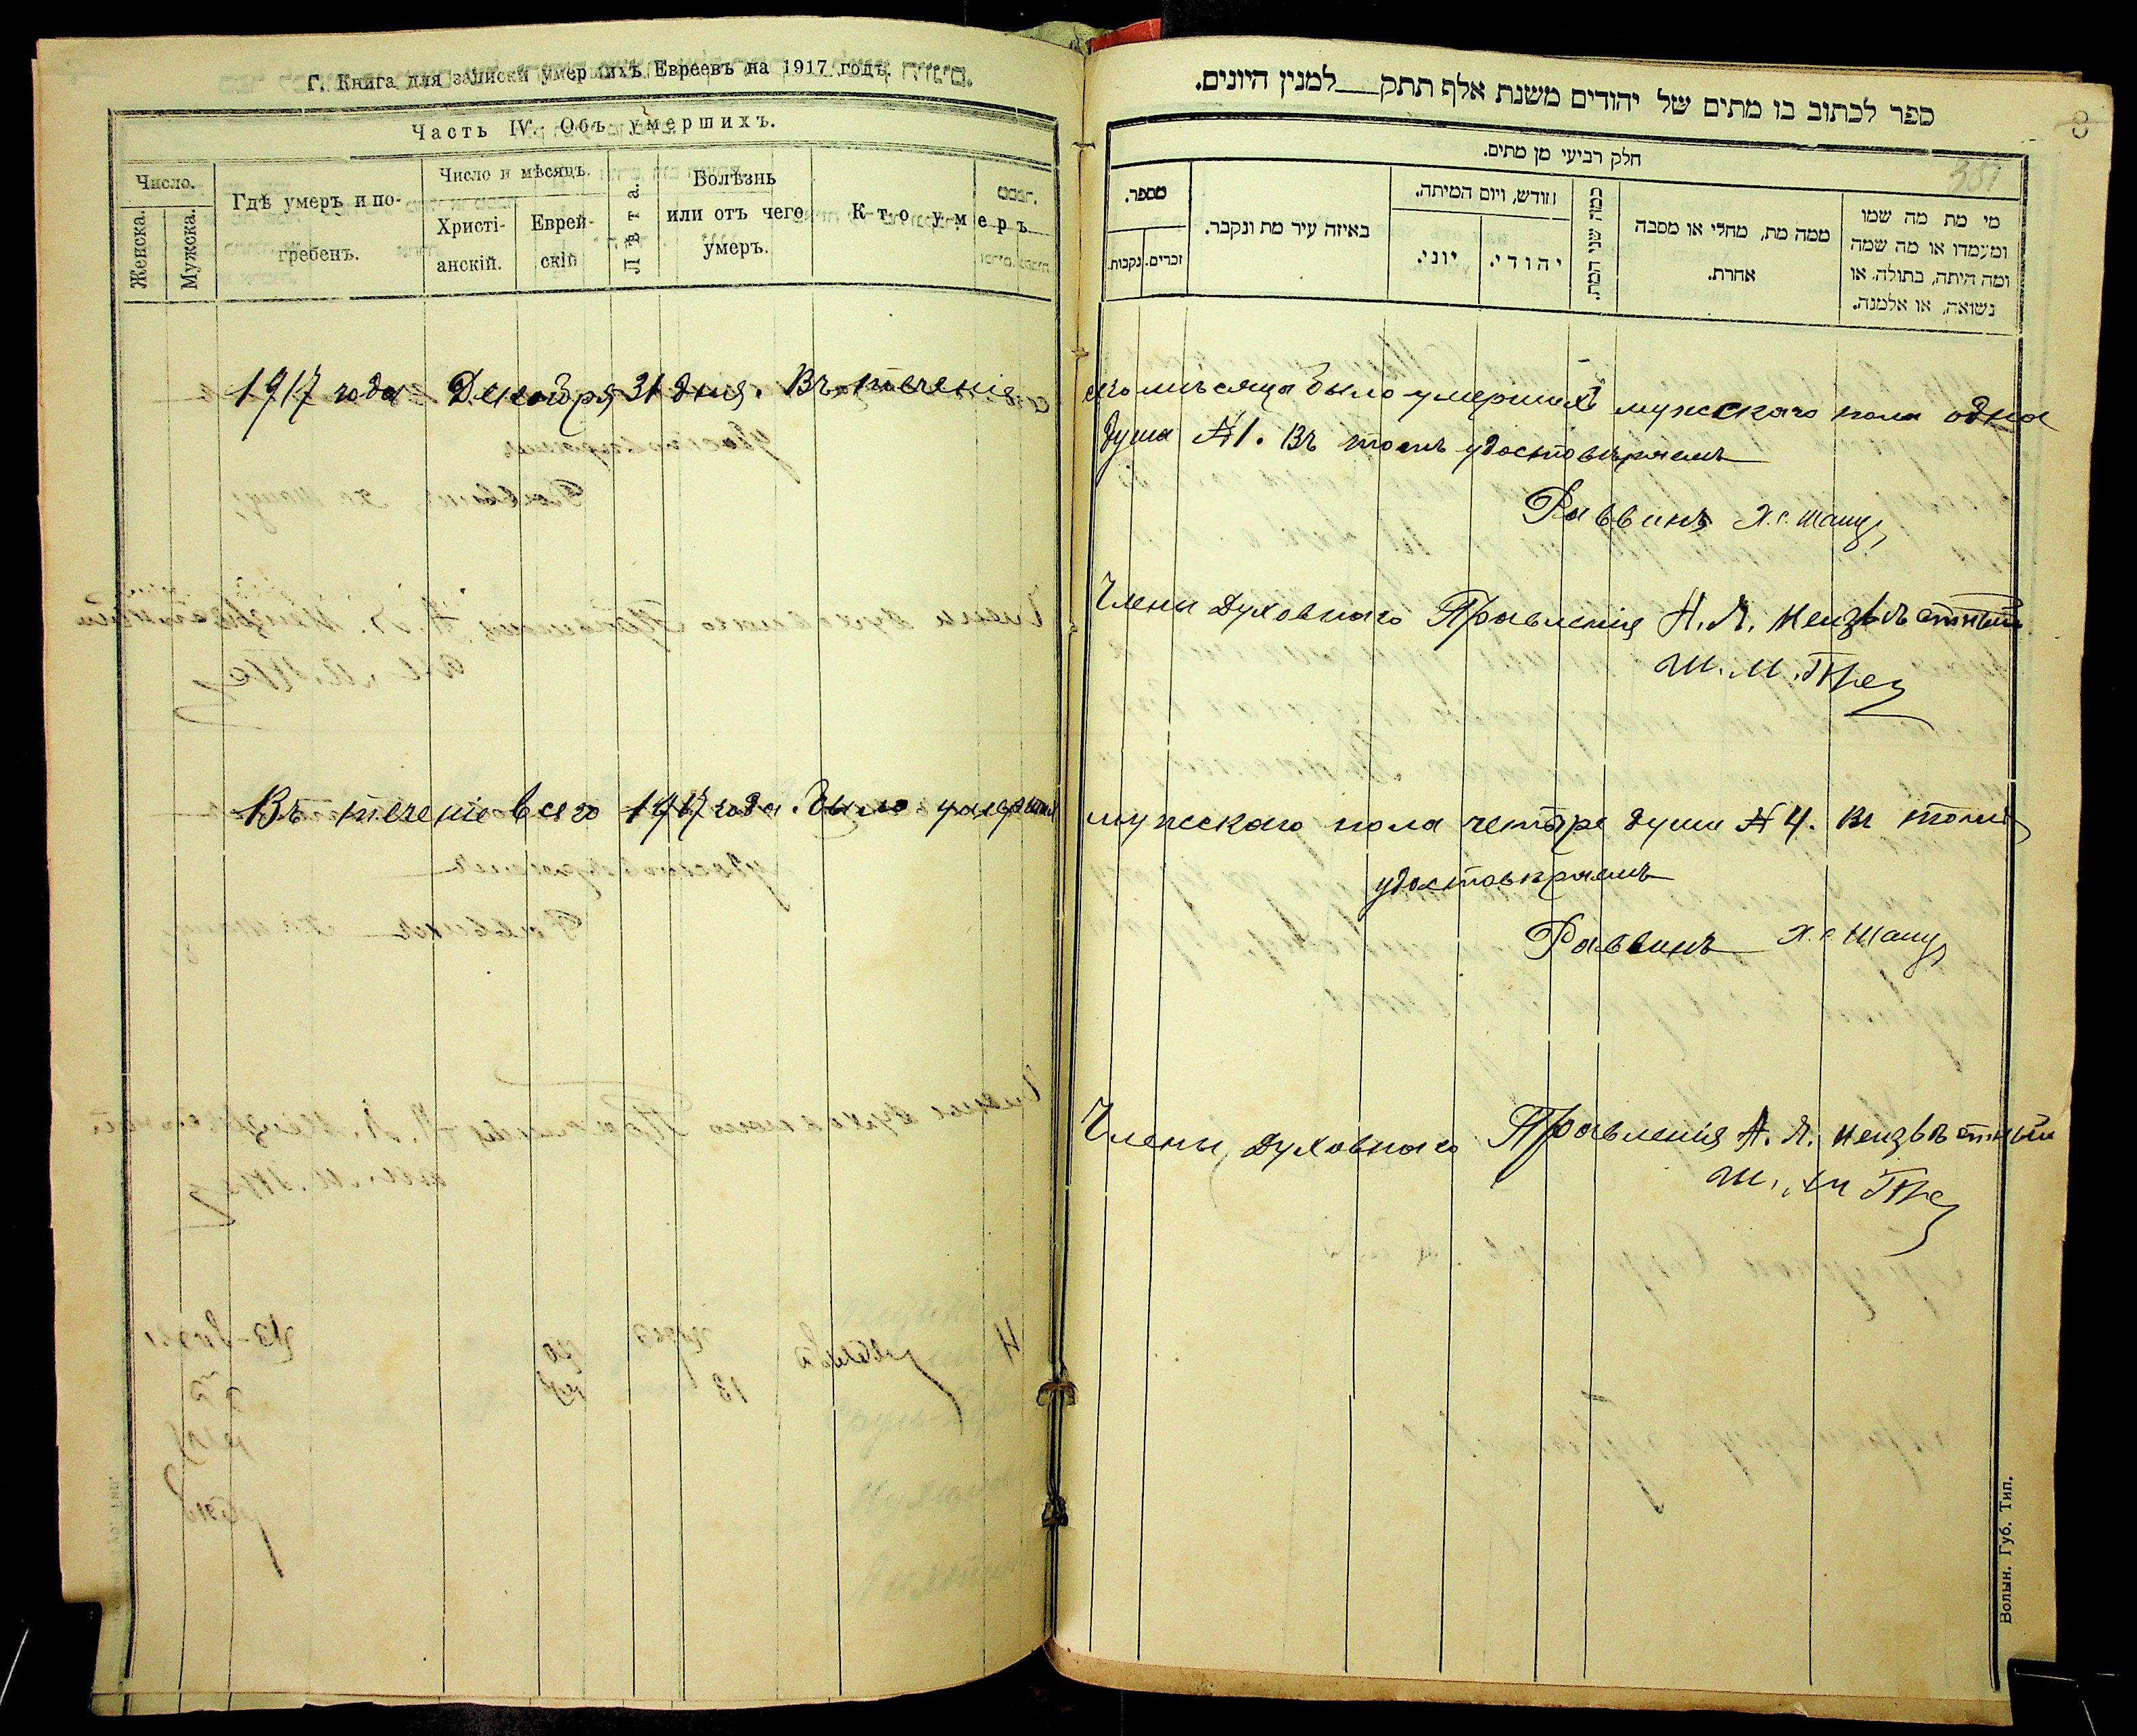 Г. Книга для записки умершихъ Евреевъ на 1917 годъ.
Часть IV. Объ умершихъ.
Число.
Женска.
Мужска.
Гдѣ умеръ и по-
гребенъ.
Число и мѣсяцъ.
Христі-
анскій.
Еврей-
скій
Лѣта.
Болѣзнь
или отъ чего
умеръ.
Кто умеръ.
ספר לכתוב בו מתים של יהודים משנת אלף תתק למנין היונים.
8
381
חלק רביעי מן מתים.
מספר.
נקבות.
זכרים.
באיזה עיר מת ונקבר.
חודש, ויום המיתה.
יוני.
יהודי.
כמה שני המת.
ממה מת, מחלי או מסבה
אחרת.
מי מת מה שמו
ומעמדו או מה שמה
ומה היתה, בתולה, או
נשואה, או אלמנה.
1917 года Декабря 31 дня. Въ теченіе
сего мѣсяца было умершихъ мужскаго пола одна
душа № 1. Въ томъ удостовѣряемъ
Раввинъ
Члены Духовнаго Правленія А. Я. Неизвѣстный
Ш. М.
Въ теченіе всего 1917 года было умерших
мужскаго пола четыре души № 4. Въ томъ
удостовѣряемъ
Раввинъ
Члены Духовнаго Правленія А. Я. Неизвѣстный
Ш. М.
Волын. Губ. Тип.